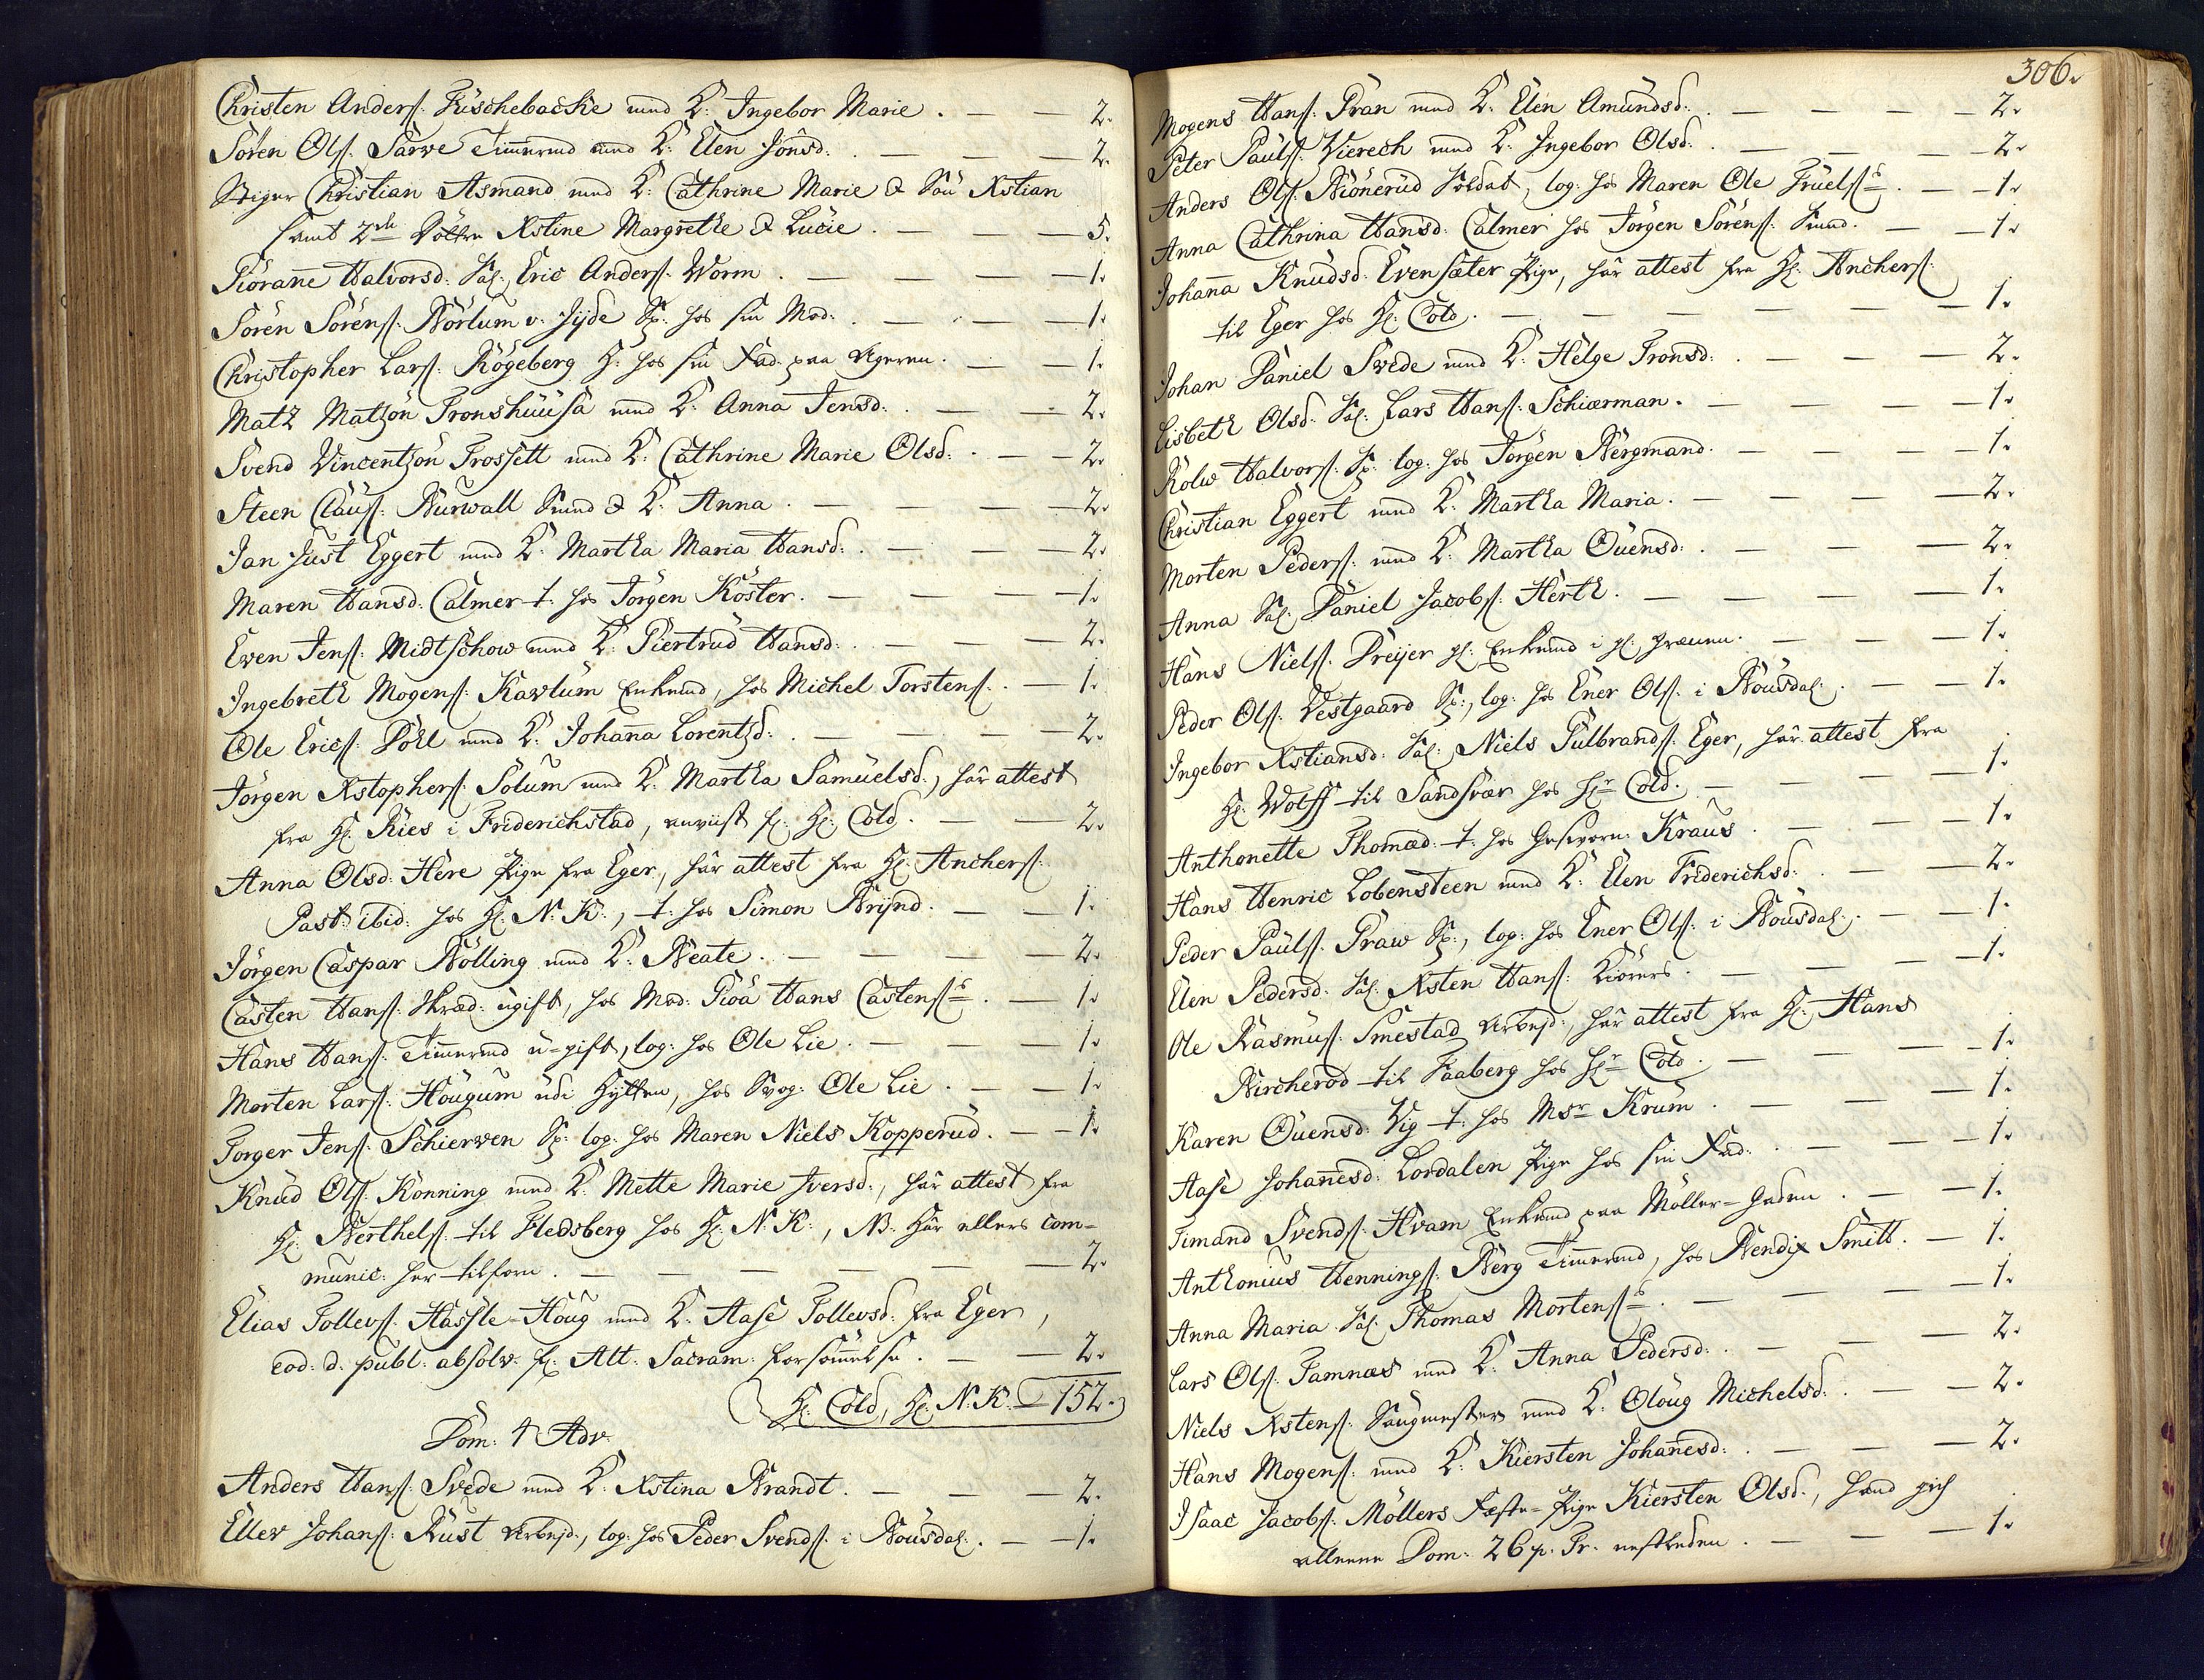 Christen Anders: Fischebacke med K: Ingebor Marie . — — 2.
Sören Ols: Sarwe Timmermd med K: Elen Jönsd: . — — — 2.
Stiger Christian Asmand med K: Cathrine Marie & Sön Xstian
samt 2de Döttre Xstine Margrethe & Lucie . — — — 5.
Giöranne Halvorsd: Sal: Eric Anders: Worm . — — — — 1.
Sören Sörens: Börlum v: Jyde Sp: hos sin Mod: . — — — 1.
Christopher Lars: Kögeberg H: hos sin Fad: paa Ageren . — — 1.
Matz Matzön Tronshuusa med K: Anna Jensd: . — — 2.
Svend Vincentzön Frossett med K: Cathrine Marie Olsd: . — — 2.
Steen Claus: Burwall Smed & K: Anna . — — — — 2.
Jan Just Eggert med K: Martha Maria Hansd: . — — — 2.
Maren Hansd: Calmer t: hos Jörgen Köster . — — — — 1.
Ewen Jens: Midtschow med K: Giertrud Hansd: . — — — 2.
Ingebreth Mogens: Kavlum Enkemd, hos Michel Torstens: . — 1.
Ole Erics: Döhl med K: Johanna Lorentzd: . — — — — 2.
Jörgen Xstophers: Solum med K: Martha Samuelsd:, här attest
fra Hr: Ries i Friderichstad, anviist f: Hr: Cold . — — 2.
Anna Olsd: Hére Pige fra Eger, här attest fra Hr: Anchers:
Past: ibid: hos Hr: N. K:, t: hos Simon Brynd . — — 1.
Jörgen Caspar Bölling med K: Beate . — — — — 2.
Casten Hans: Skræd: ugift, hos Mod: Gioa Hans Castens:s . — 1.
Hans Hans: Timmermd u=gift, log: hos Ole Lie . — — — 1.
Morten Lars: Hougum udi Hytten, hos Svog: Ole Lie . — — 1.
Torger Jens: Schierven Sp: log: hos Maren Niels Kopperud . — — 1.
Knud Ols: Konning med K: Mette Marie Iversd:, här attest fra
Hr: Berthels: til Fledsberg hos Hr: N. K:, NB. här ellers com=
munic: her tilforn . — — — — — — — 2.
Elias Tollevs: Hassle=Houg med K: Aase Tollevsd: fra Eger,
eod: d: publ: absolv: f: Alt: Sacram: forsömmelse . — — 2.
Hr: Cold, Hr: N. K: — 152.
Dom: 4 Adv:
Anders Hans: Svede med K: Xstina Brandt . — — — 2.
Ellev Johans: Rust Arbejd:, log: hos Peder Svends: i Bousdal: . — 1.
306.
Mogens Hans: Pran med K: Elen Amundsd: . — — — 2.
Peter Pauls: Vierech med K: Ingebor Olsd: . — — — 2.
Anders Ols: Biönerud Soldat, log: hos Maren Ole Truels:s . — — 1.
Anna Cathrina Hansd: Calmer hos Jörgen Sörens: Smed . — — 1.
Johanna Knudsd: Evensæter Pige, här attest fra Hr: Anchers:
til Eger hos Hr: Cold . — — — — — — 1.
Johan Daniel Svede med K: Helge Tronsd: . — — — 2.
Lisbeth Olsd: Sal: Lars Hans: Schiærman . — — — — 1.
Rolw Halvors: Sp: log: hos Jörgen Bergmand . — — — 1.
Christian Eggert med K: Martha Maria . — — — — 2.
Morten Peders: med K: Martha Ouensd: . — — — 2.
Anna Sal: Daniel Jacobs: Herth . — — — — 1.
Hans Niels: Dreyer gl: Enkemd i gl: Gruen . — — — 1.
Peder Ols: Vestgaard Sp:, log: hos Ener Ols: i Bousdal: . — — 1.
Ingebor Xstiansd: Sal: Niels Gulbrands: Eger, här attest fra
Hr: Wolff til Sandsvær hos Hr: Cold . — — — — 1.
Anthonette Thomæd: t: hos Gesvorn: Kraus . — — — 1.
Hans Henric Lobensteen med K: Elen Friderichsd: . — — 2.
Peder Pauls: Praw Sp:, log: hos Ener Ols: i Bousdal: . — — 1.
Elen Pedersd: Sal: Xsten Hans: Kiörers . — — — — 1.
Ole Rasmus: Smestad Arbejd:, här attest fra Hr: Hans
Bircherod til Faaberg hos Hr: Cold . — — — — 1.
Karen Ouensd: Vig t: hos Msr Krum . — — — — 1.
Aase Johannesd: Lordalen Pige hos sin Fad: . — — — 1.
Timand Svends: Hvam Enkemd paa Möller=Gaden . — — 1.
Anthonius Hennings: Berg Timmermd, hos Bendix Smitt . — 1.
Anna Maria Sal: Thomas Mortens:s . — — — — 1.
Lars Ols: Tamnæs med K: Anna Pedersd: . — — — 2.
Niels Xstens: Saugmester med K: Oloug Michelsd: . — — 2.
Hans Mogens: med K: Kiersten Johannesd: . — — — 2.
Isaac Jacobs: Möllers Fæste=Pige Kiersten Olsd:, hand gich
alleene Dom: 26 p. Tr: nestleden . — — — 1.